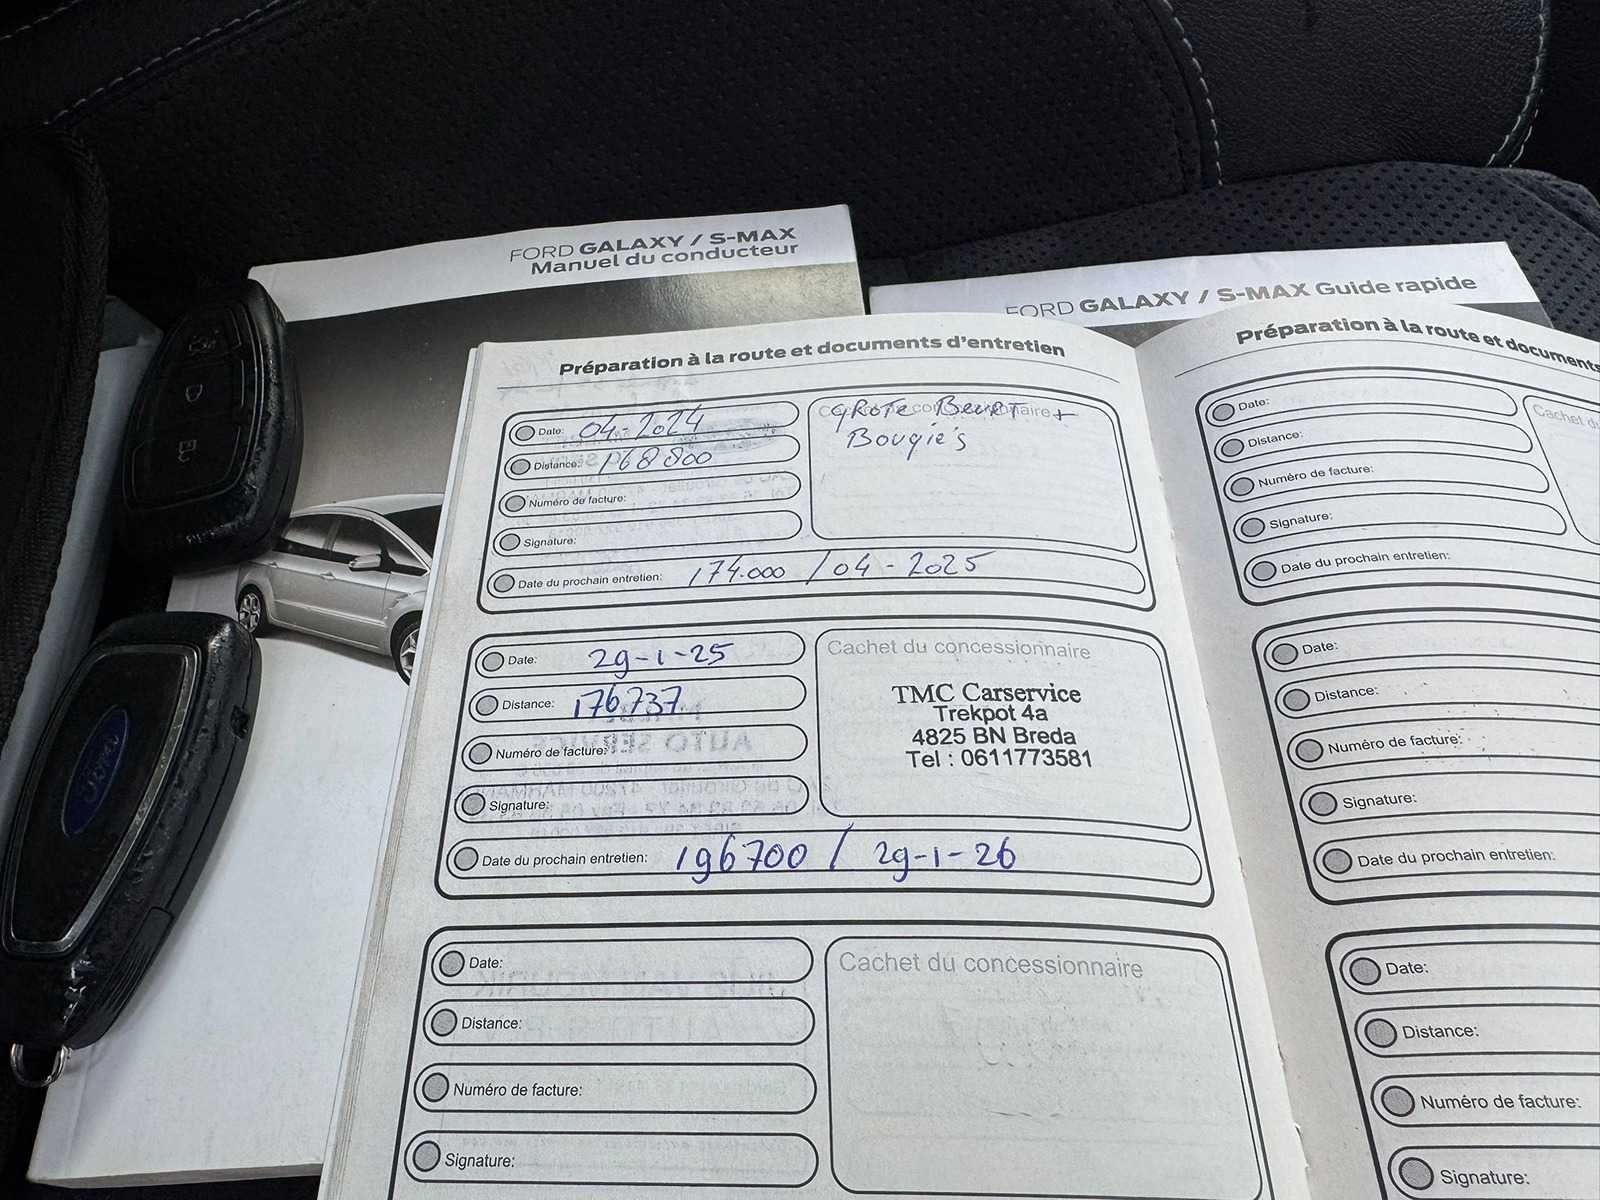 FORD GALAXY / S-MAX
Manuel du conducteur
FORD GALAXY / S-MAX Guide rapide
Ford
Préparation à la route et documents d'entretien
Date: 04-2024
Distance: 168800
Numéro de facture:
Signature:
Date du prochain entretien: 174.000 / 04-2025
GROTE Beurt +
Bougie's
Date: 29-1-25
Distance: 176.737
Numéro de facture:
Signature:
Date du prochain entretien: 196700 / 29-1-26
Cachet du concessionnaire
TMC Carservice
Trekpot 4a
4825 BN Breda
Tel : 0611773581
Date:
Distance:
Numéro de facture:
Signature:
Cachet du concessionnaire
Préparation à la route et documents
Date:
Distance:
Numéro de facture:
Signature:
Date du prochain entretien:
Cachet
Date:
Distance:
Numéro de facture:
Signature:
Date du prochain entretien:
Date:
Distance:
Numéro de facture:
Signature: